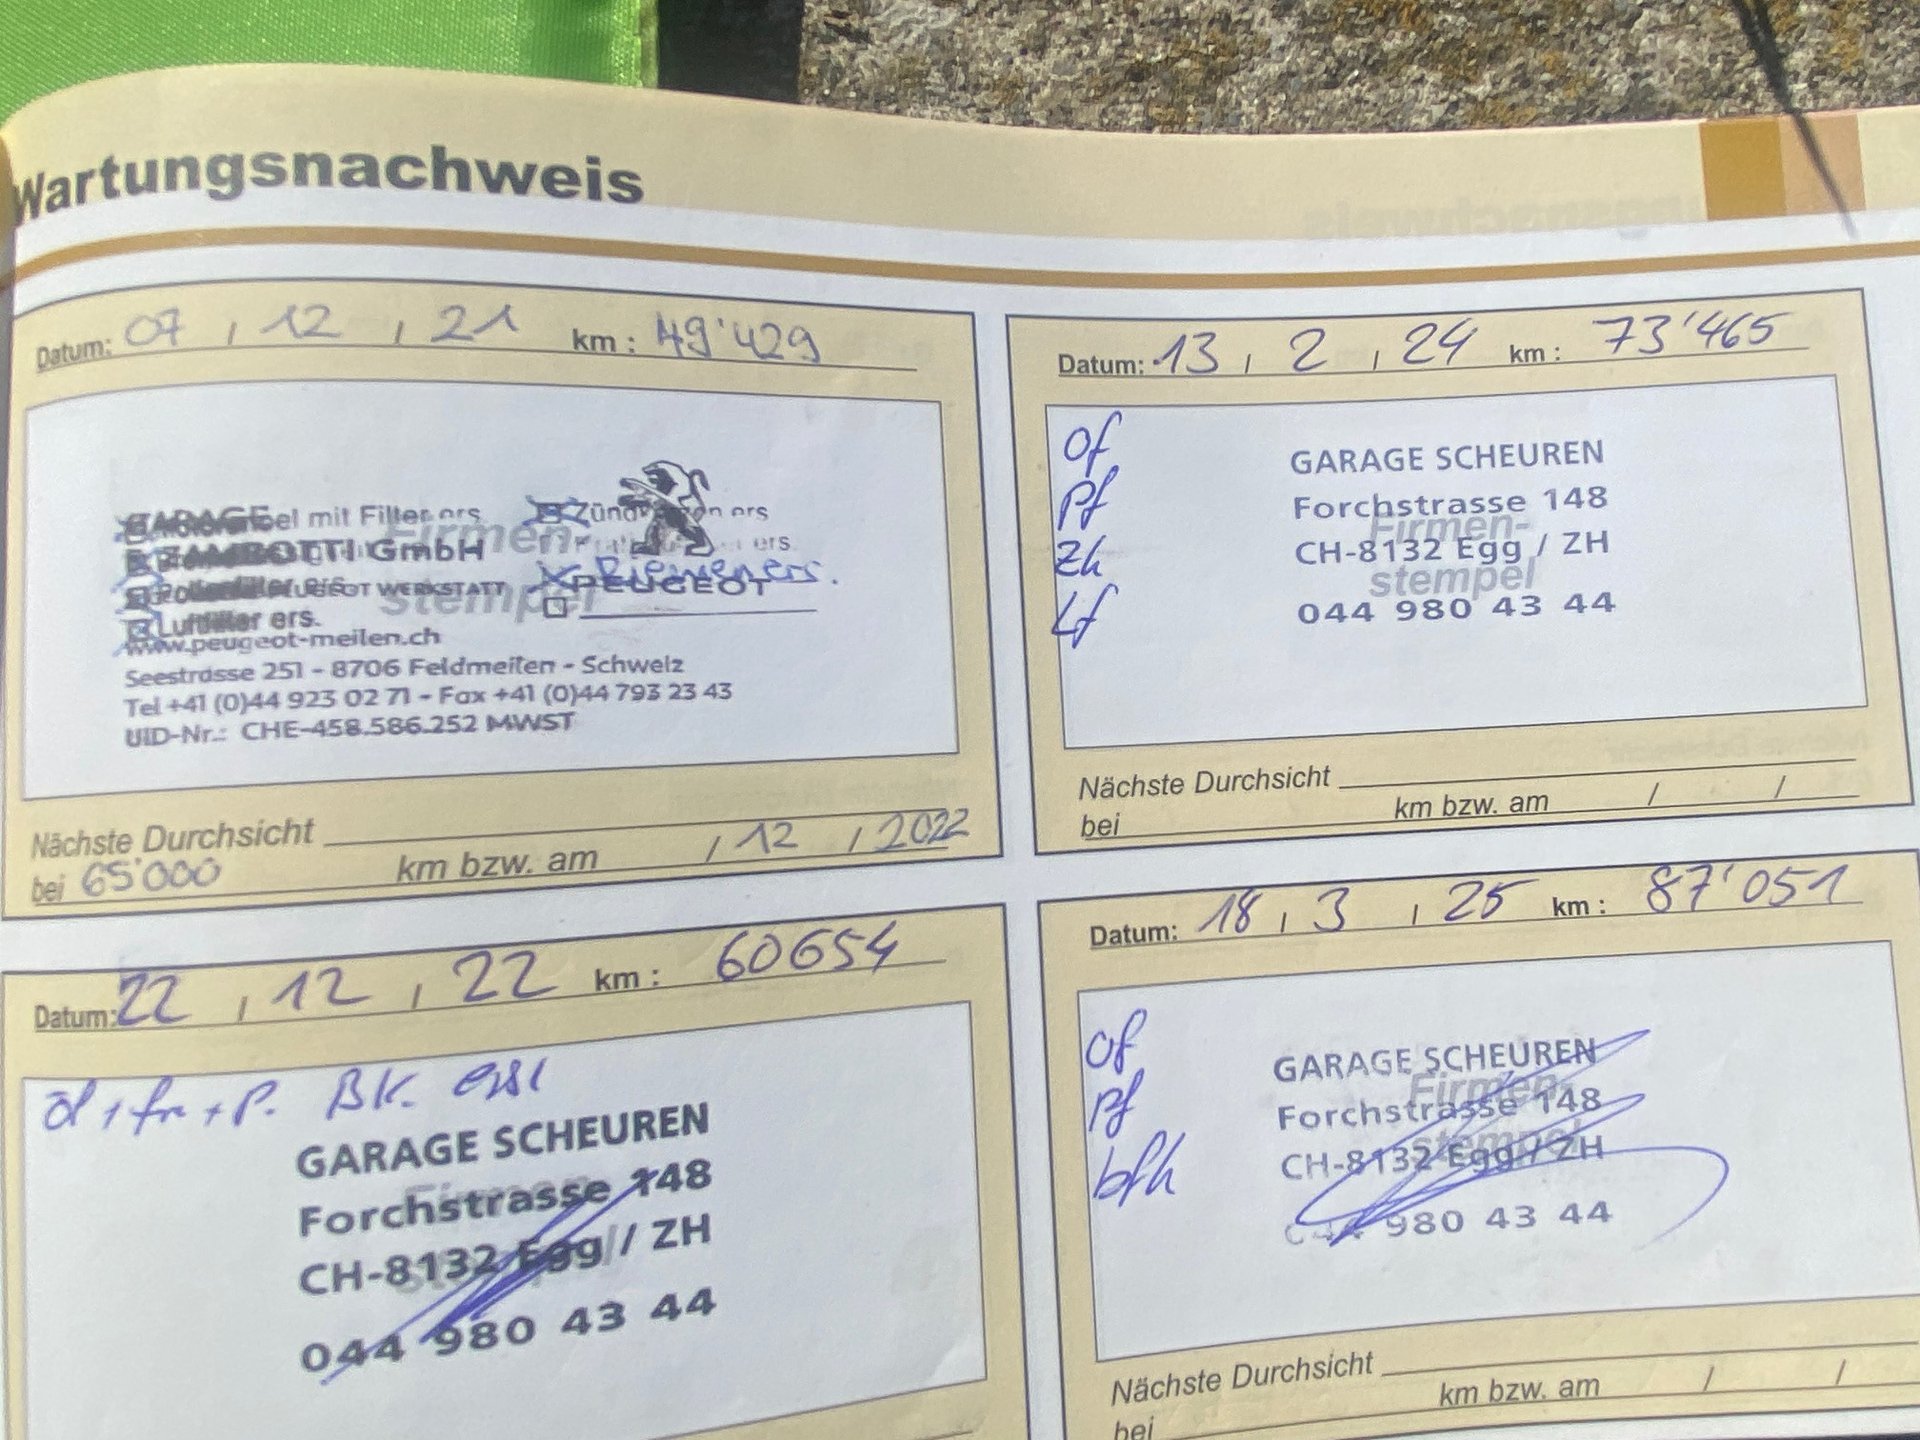 Wartungsnachweis
Datum: 07 / 12 / 21 km : 49'429
GARAGE
mit Filter ers
ers
GmbH
ers.
PEUGEOT WERKSTATT
PEUGEOT
Riemen ers.
Luftfilter ers.
www.peugeot-meilen.ch
Seestrasse 251 - 8706 Feldmeilen - Schweiz
Tel +41 (0)44 923 02 71 - Fax +41 (0)44 793 23 43
UID-Nr.: CHE-458.586.252 MWST
Firmen-
stempel
Nächste Durchsicht
bei 65'000 km bzw. am / 12 / 2022
Datum: 22 / 12 / 22 km : 60654
GARAGE SCHEUREN
Forchstrasse 148
CH-8132 Egg / ZH
044 980 43 44
Datum: 13 / 2 / 24 km : 73'465
Of
Pf
Zk
Lf
GARAGE SCHEUREN
Forchstrasse 148
Firmen-
CH-8132 Egg / ZH
stempel
044 980 43 44
Nächste Durchsicht
bei km bzw. am / /
Datum: 18 / 3 / 25 km : 87'051
Of
Pf
bfk
GARAGE SCHEUREN
Firmen-
Forchstrasse 148
stempel
CH-8132 Egg / ZH
044 980 43 44
Nächste Durchsicht
bei km bzw. am / /